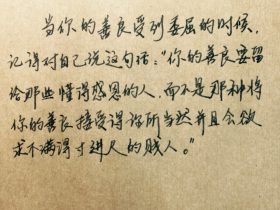 当你的善良受到委屈的时候，
记得对自己说这句话："你的善良要留
给那些懂得感恩的人，而不是那种将
你的善良接受得理所当然并且会欲
求不满得寸进尺的贱人。"